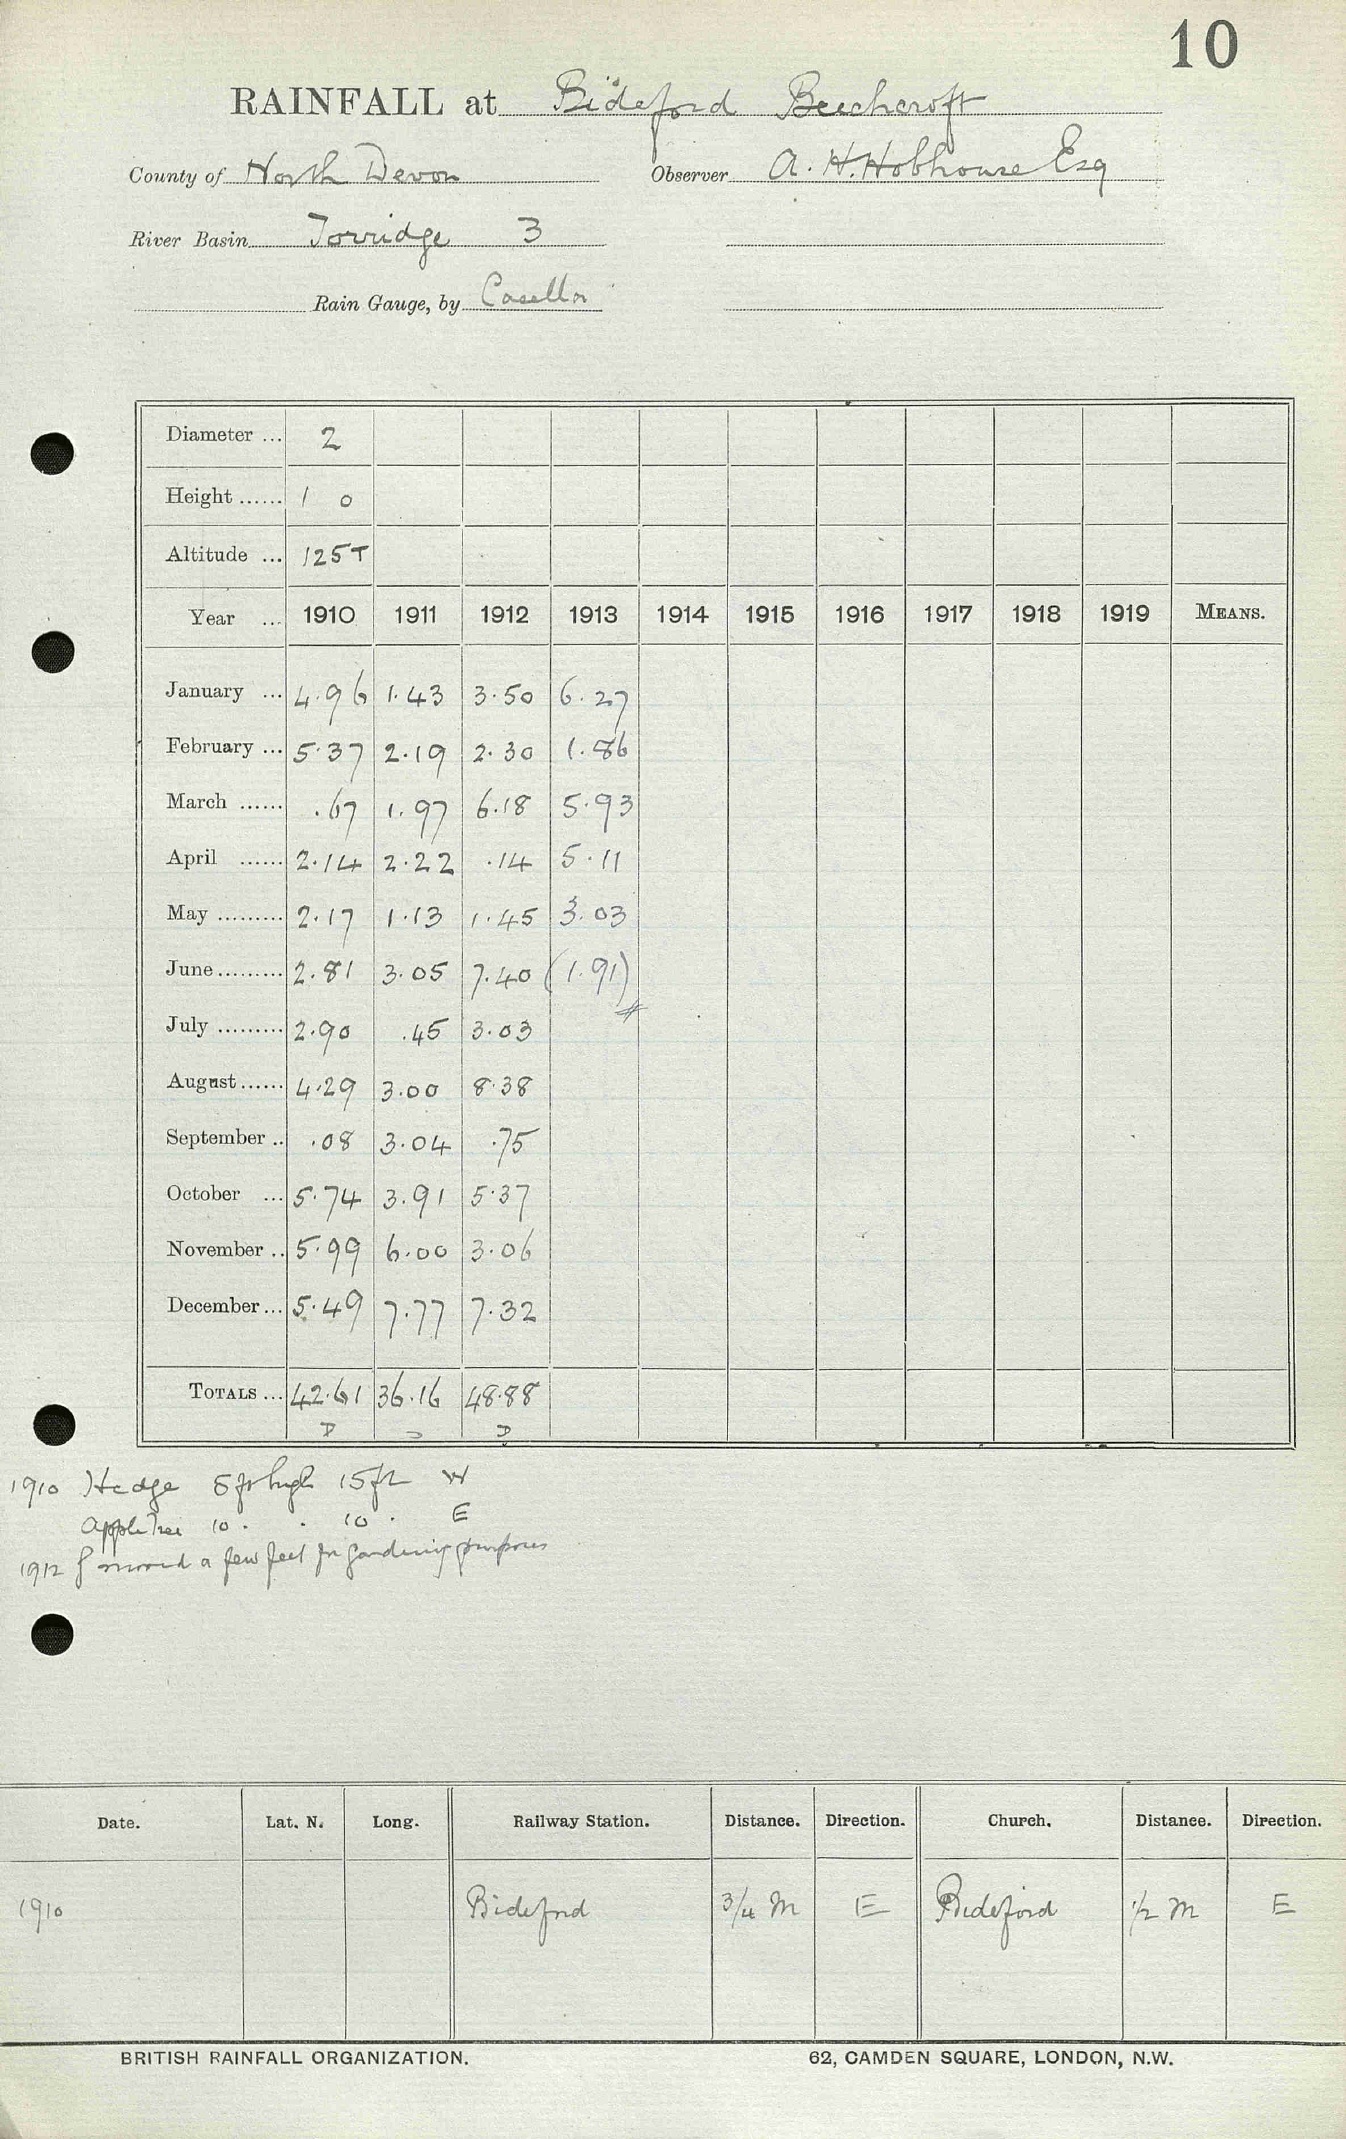 10
RAINFALL at Bideford Beechcroft
County of North Devon Observer A. H. Hobhouse Esq
River Basin Torridge 3
Rain Gauge, by Casella
Diameter ... 2
Height ...... 1 0
Altitude ... 125 T
Year ... 1910 1911 1912 1913 1914 1915 1916 1917 1918 1919 MEANS.
January ... 4.96 1.43 3.50 6.27
February ... 5.37 2.19 2.30 1.86
March ...... .67 1.97 6.18 5.93
April ...... 2.14 2.22 .14 5.11
May ......... 2.17 1.13 1.45 3.03
June ......... 2.81 3.05 7.40 (1.91)
#
July ......... 2.90 .45 3.03
August ...... 4.29 3.00 8.38
September .. .08 3.04 .75
October ... 5.74 3.91 5.37
November .. 5.99 6.00 3.06
December ... 5.49 7.77 7.32
TOTALS ... 42.61 36.16 48.88
D D D
1910 Hedge 5 ft high 15 ft W
Apple Tree 10 . . 10 . E
1912 moved a few feet for gardening purposes
Date. Lat. N. Long. Railway Station. Distance. Direction. Church. Distance. Direction.
1910 Bideford 3/4 M E Bideford 1/2 M E
BRITISH RAINFALL ORGANIZATION. 62, CAMDEN SQUARE, LONDON, N.W.